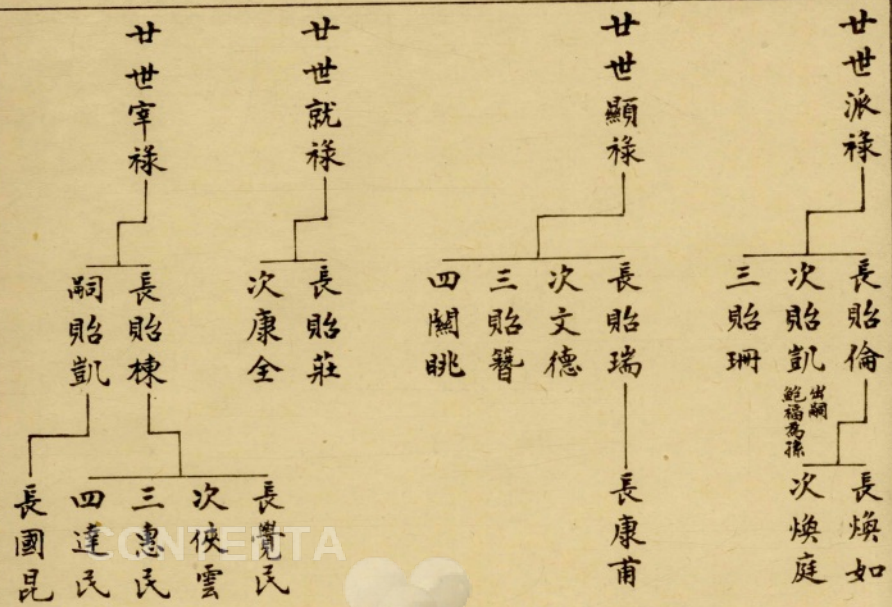 廿世派祿
長貽倫
次貽凱
出嗣
鮑福為孫
三貽珊
長煥如
次煥庭
廿世顯祿
長貽瑞
次文德
三貽簪
四關眺
長康甫
廿世就祿
長貽莊
次康全
廿世宰祿
長貽棟
嗣貽凱
長覺民
次俠雲
三惠民
四達民
長國昆
CONTENTA